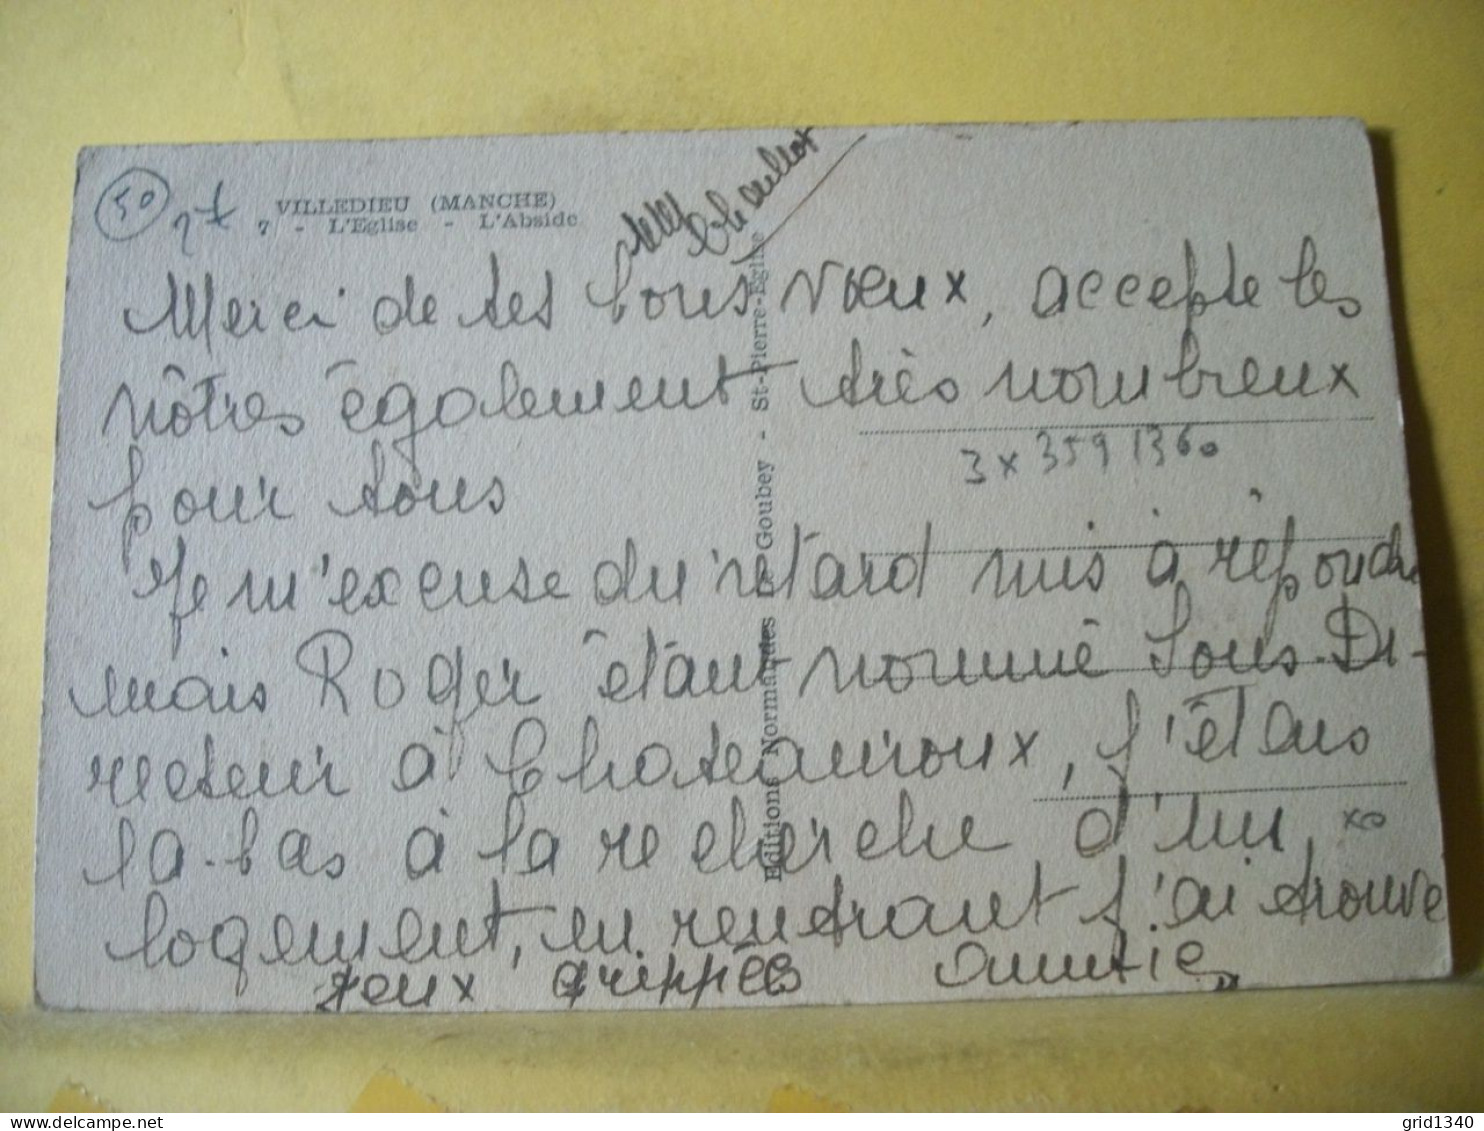 50
VILLEDIEU (MANCHE)
7 - L'Eglise - L'Abside
Merci de tes bons vœux, accepte les
nôtres également très nombreux
pour tous
3 x 359 1360
Je m'excuse du retard mis à répondre
mais Roger étant nommé Sous-Di-
recteur à Chateauroux, j'étais
la-bas à la recherche d'un
logement, en rentrant j'ai trouvé
grippés amitiés
Editions Normandes Le Goubey - St-Pierre-Eglise
grid1340